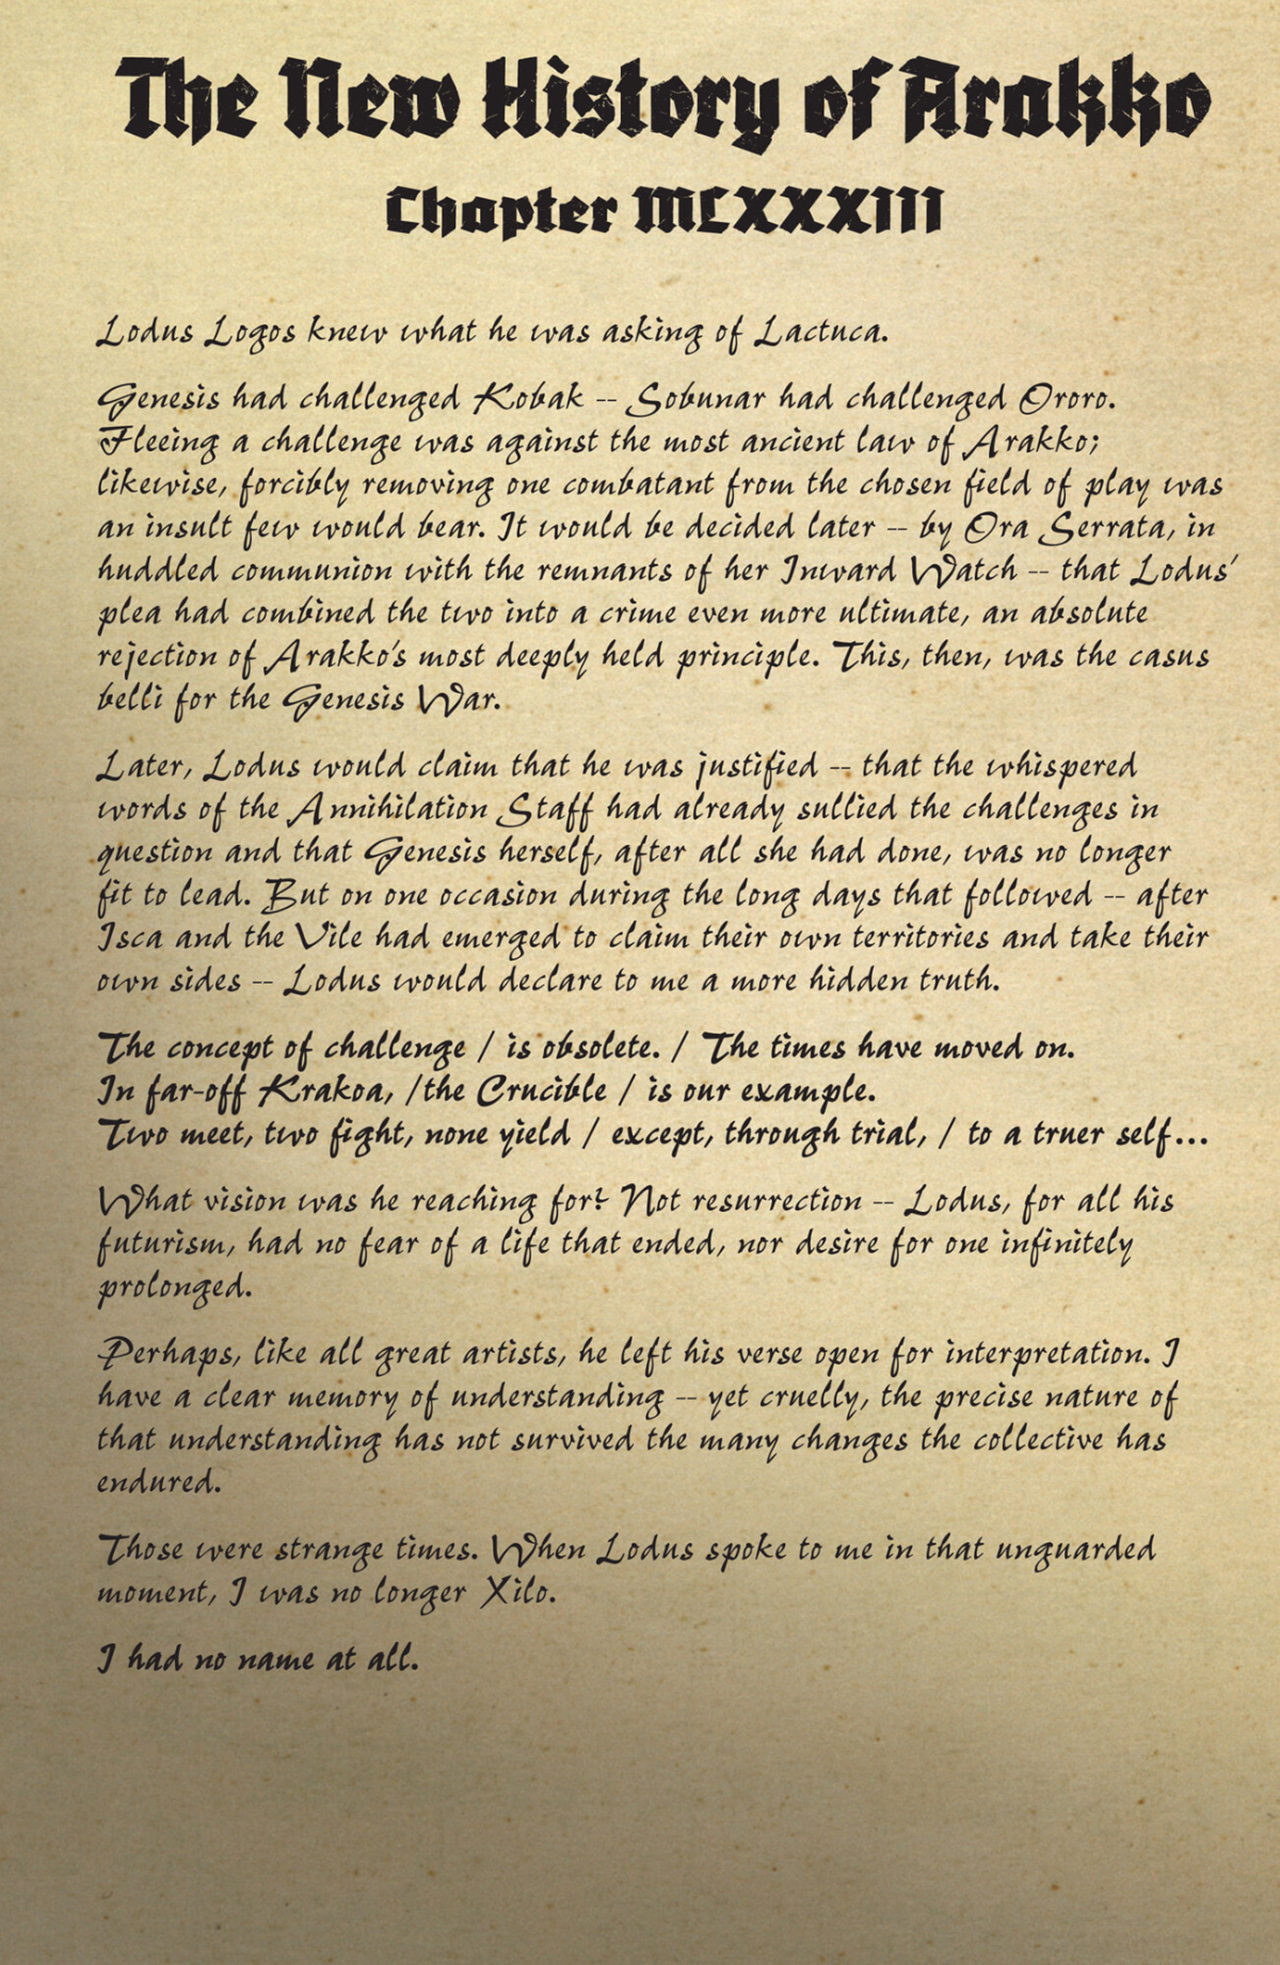 The New History of Arakko
Chapter MLXXXIII
Lodus Logos knew what he was asking of Lactuca.
Genesis had challenged Kobak -- Sobunar had challenged Ororo.
Fleeing a challenge was against the most ancient law of Arakko;
likewise, forcibly removing one combatant from the chosen field of play was
an insult few would bear. It would be decided later -- by Ora Serrata, in
huddled communion with the remnants of her Inward Watch -- that Lodus'
plea had combined the two into a crime even more ultimate, an absolute
rejection of Arakko's most deeply held principle. This, then, was the casus
belli for the Genesis War.
Later, Lodus would claim that he was justified -- that the whispered
words of the Annihilation Staff had already sullied the challenges in
question and that Genesis herself, after all she had done, was no longer
fit to lead. But on one occasion during the long days that followed -- after
Isca and the Vile had emerged to claim their own territories and take their
own sides -- Lodus would declare to me a more hidden truth.
The concept of challenge / is obsolete. / The times have moved on.
In far-off Krakoa, /the Crucible / is our example.
Two meet, two fight, none yield / except, through trial, / to a truer self...
What vision was he reaching for? Not resurrection -- Lodus, for all his
futurism, had no fear of a life that ended, nor desire for one infinitely
prolonged.
Perhaps, like all great artists, he left his verse open for interpretation. I
have a clear memory of understanding -- yet cruelly, the precise nature of
that understanding has not survived the many changes the collective has
endured.
Those were strange times. When Lodus spoke to me in that unguarded
moment, I was no longer Xilo.
I had no name at all.